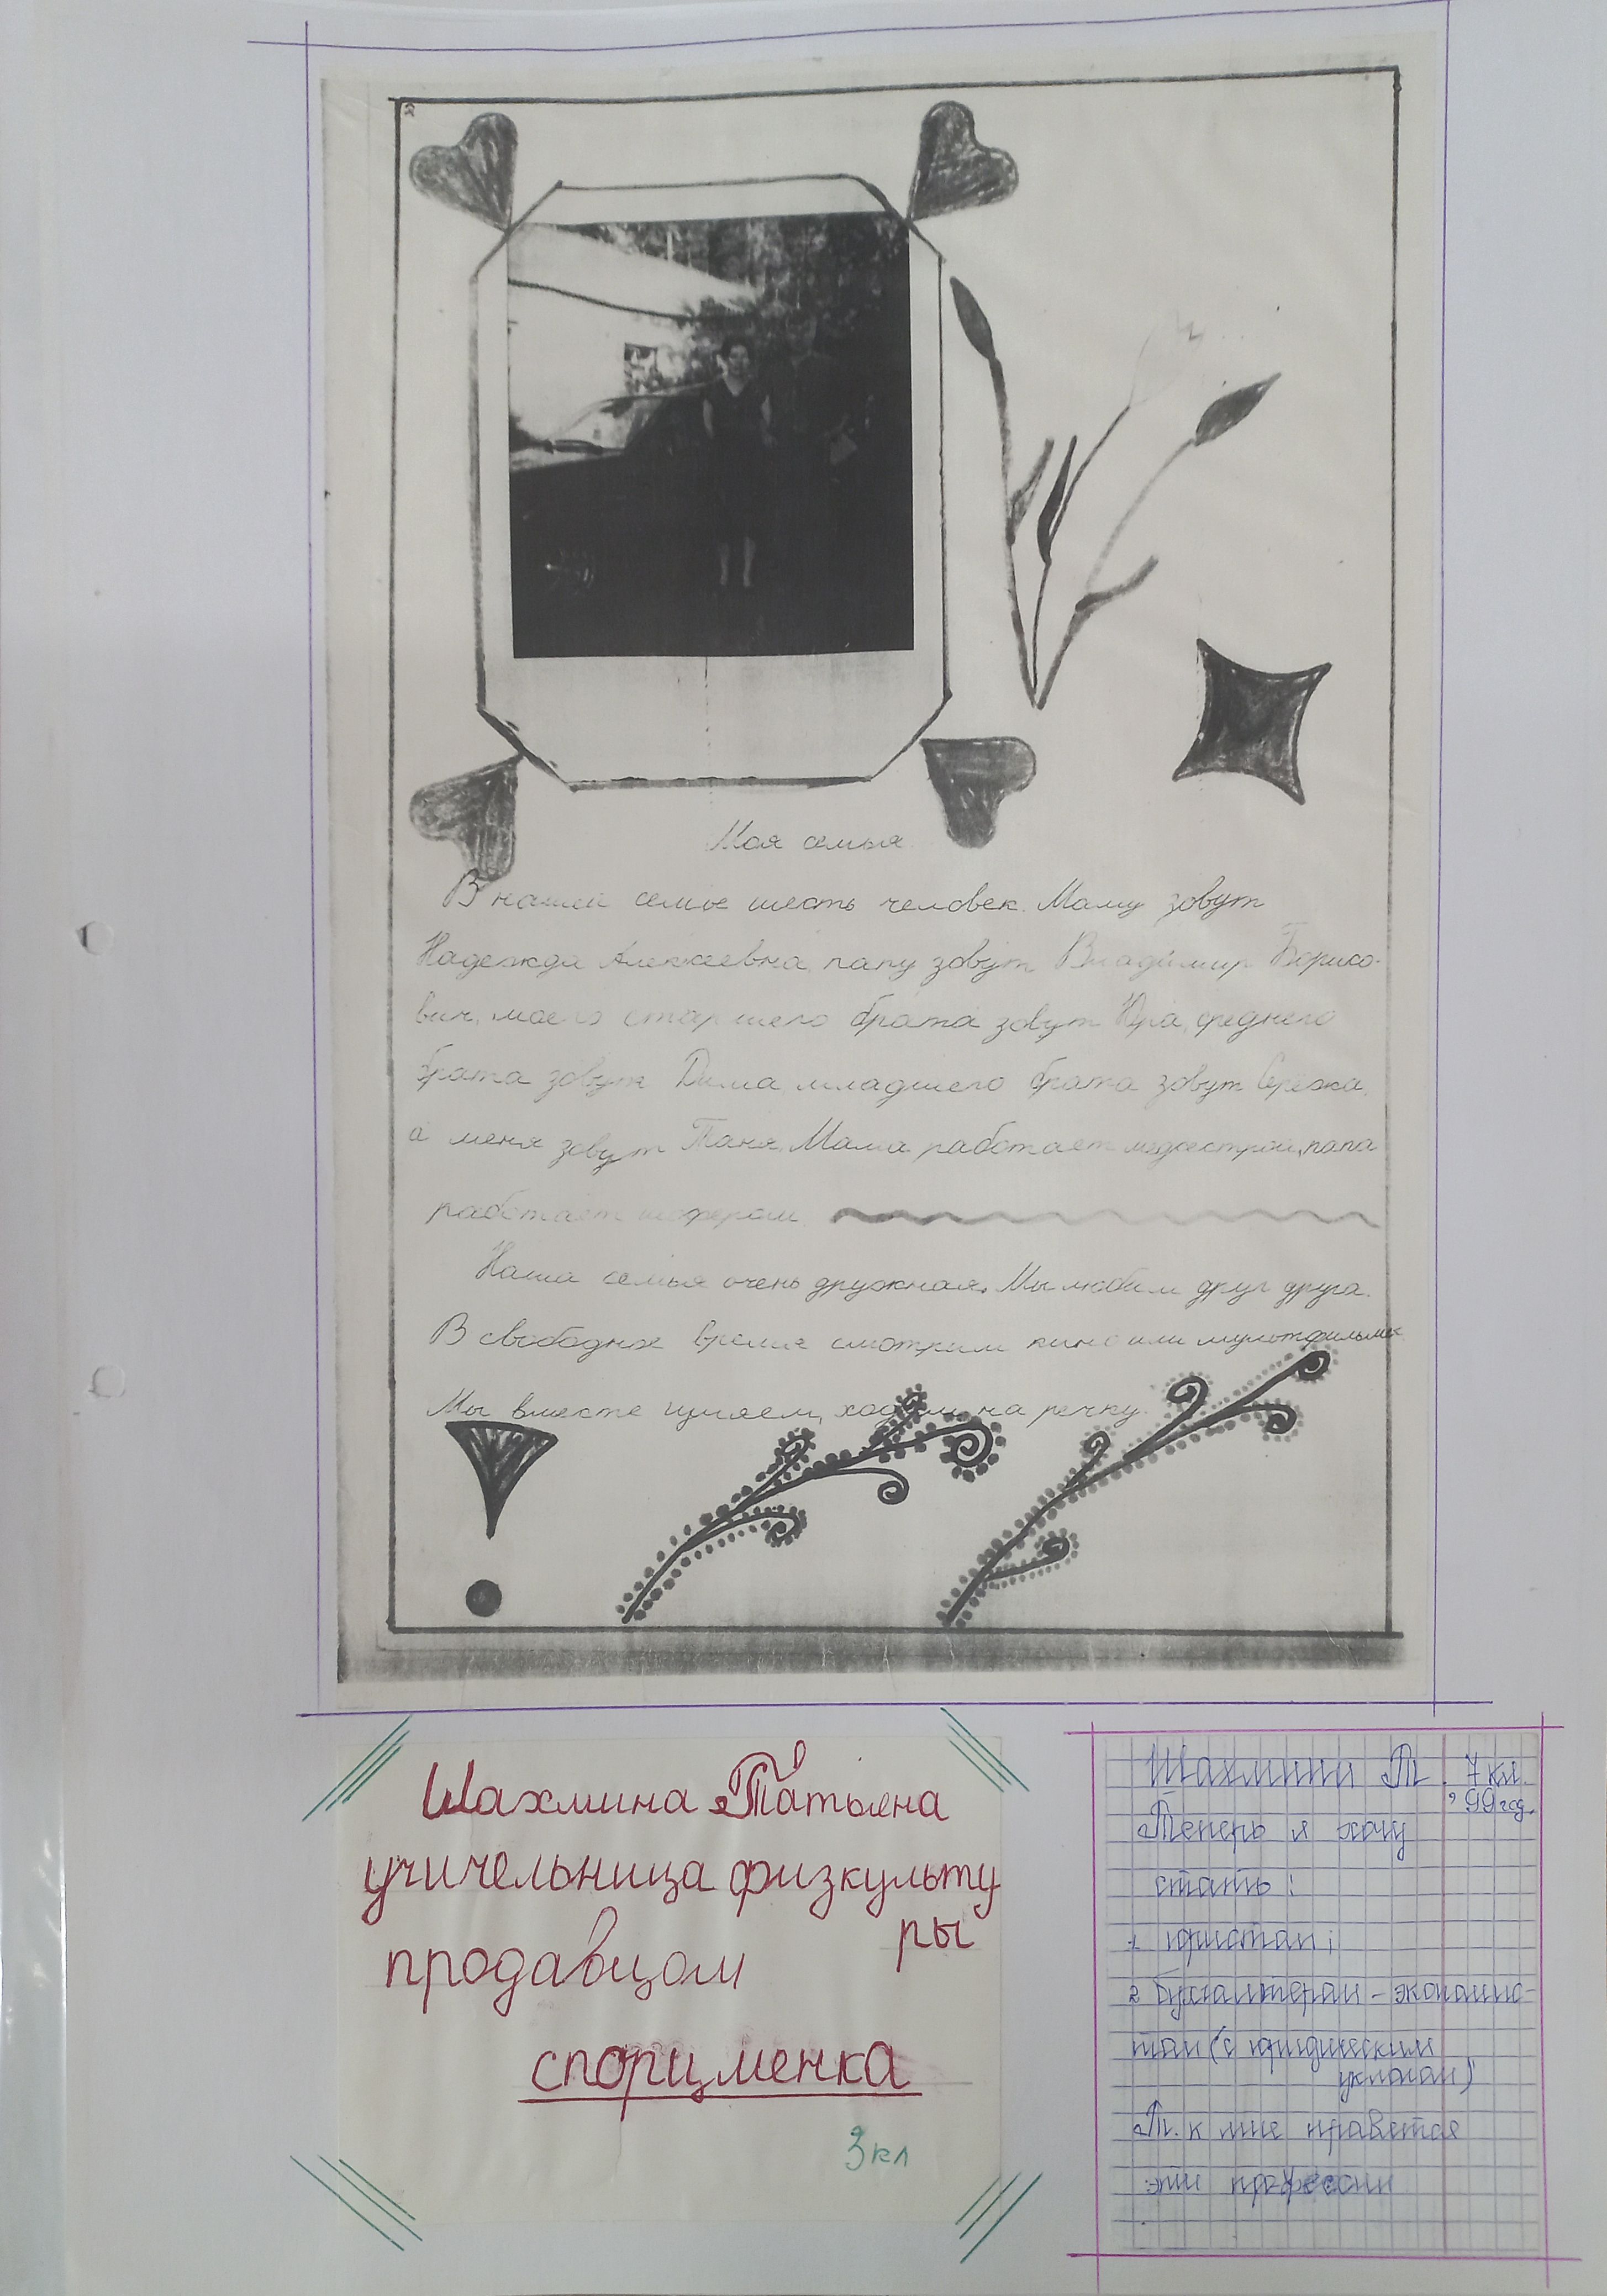 Моя семья
В нашей семье шесть человек. Маму зовут
Надежда Алексеевна, папу зовут Владимир Борисо-
вич, моего старшего брата зовут Юра, среднего
брата зовут Дима, младшего брата зовут Сережа,
а меня зовут Таня. Мама работает медсестрой, папа
работает шофером.
Наша семья очень дружная. Мы любим друг друга.
В свободное время смотрим кино или мультфильмы
Мы вместе гуляем, ходим на речку.
Шахмина Татьяна
учичельница физкульту
ры
продавцом
спорцменка
3 кл
Шахмина Т. 7 кл.
99 год.
Теперь я хочу
стать:
1 юристом;
2 бухгалтером-экономис-
том (с юридическим
уклоном)
Т. к мне нравятся
эти профессии